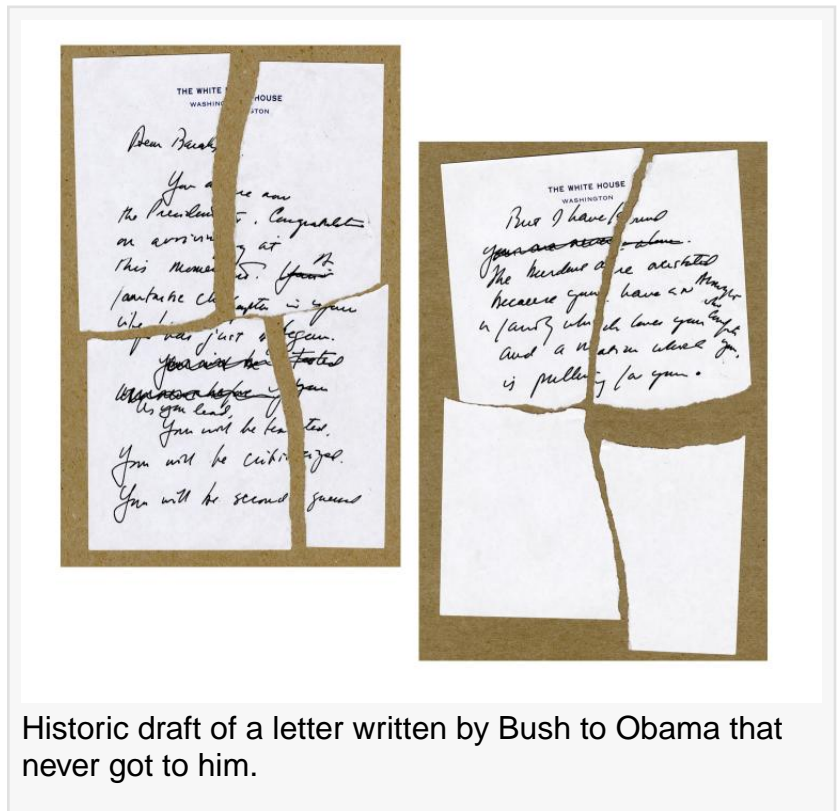 THE WHITE HOUSE
WASHINGTON
Dear Barack,
You are now
the President. Congratulations
on arriving at
this moment. A
fantastic chapter in your
life has just begun.
You will be tested
as never before if you
As you lead,
You will be tested.
You will be criticized.
You will be second guessed
THE WHITE HOUSE
WASHINGTON
But I have found
you are never alone.
The burdens are
because you have an Almighty
who
a family which loves you, comforts
and a nation which you,
is pulling for you.
Historic draft of a letter written by Bush to Obama that
never got to him.